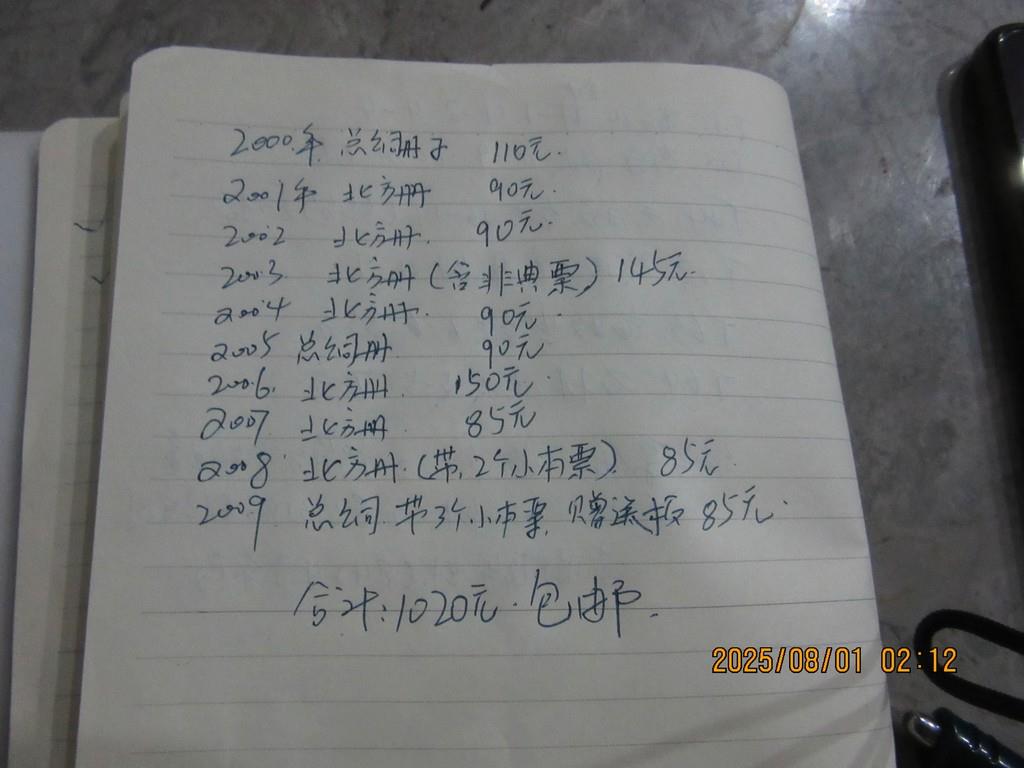 2000年 总公司册子 110元.
2001年 北方册 90元.
2002 北方册. 90元.
2003. 北方册(含非典票) 145元.
2004 北方册. 90元.
2005 总公司册. 90元
2006. 北方册. 150元.
2007 北方册 85元
2008 北方册.(带2个小本票) 85元.
2009 总公司.带3个小本票,赠送版 85元.
合计:1020元.包邮.
2025/08/01 02:12